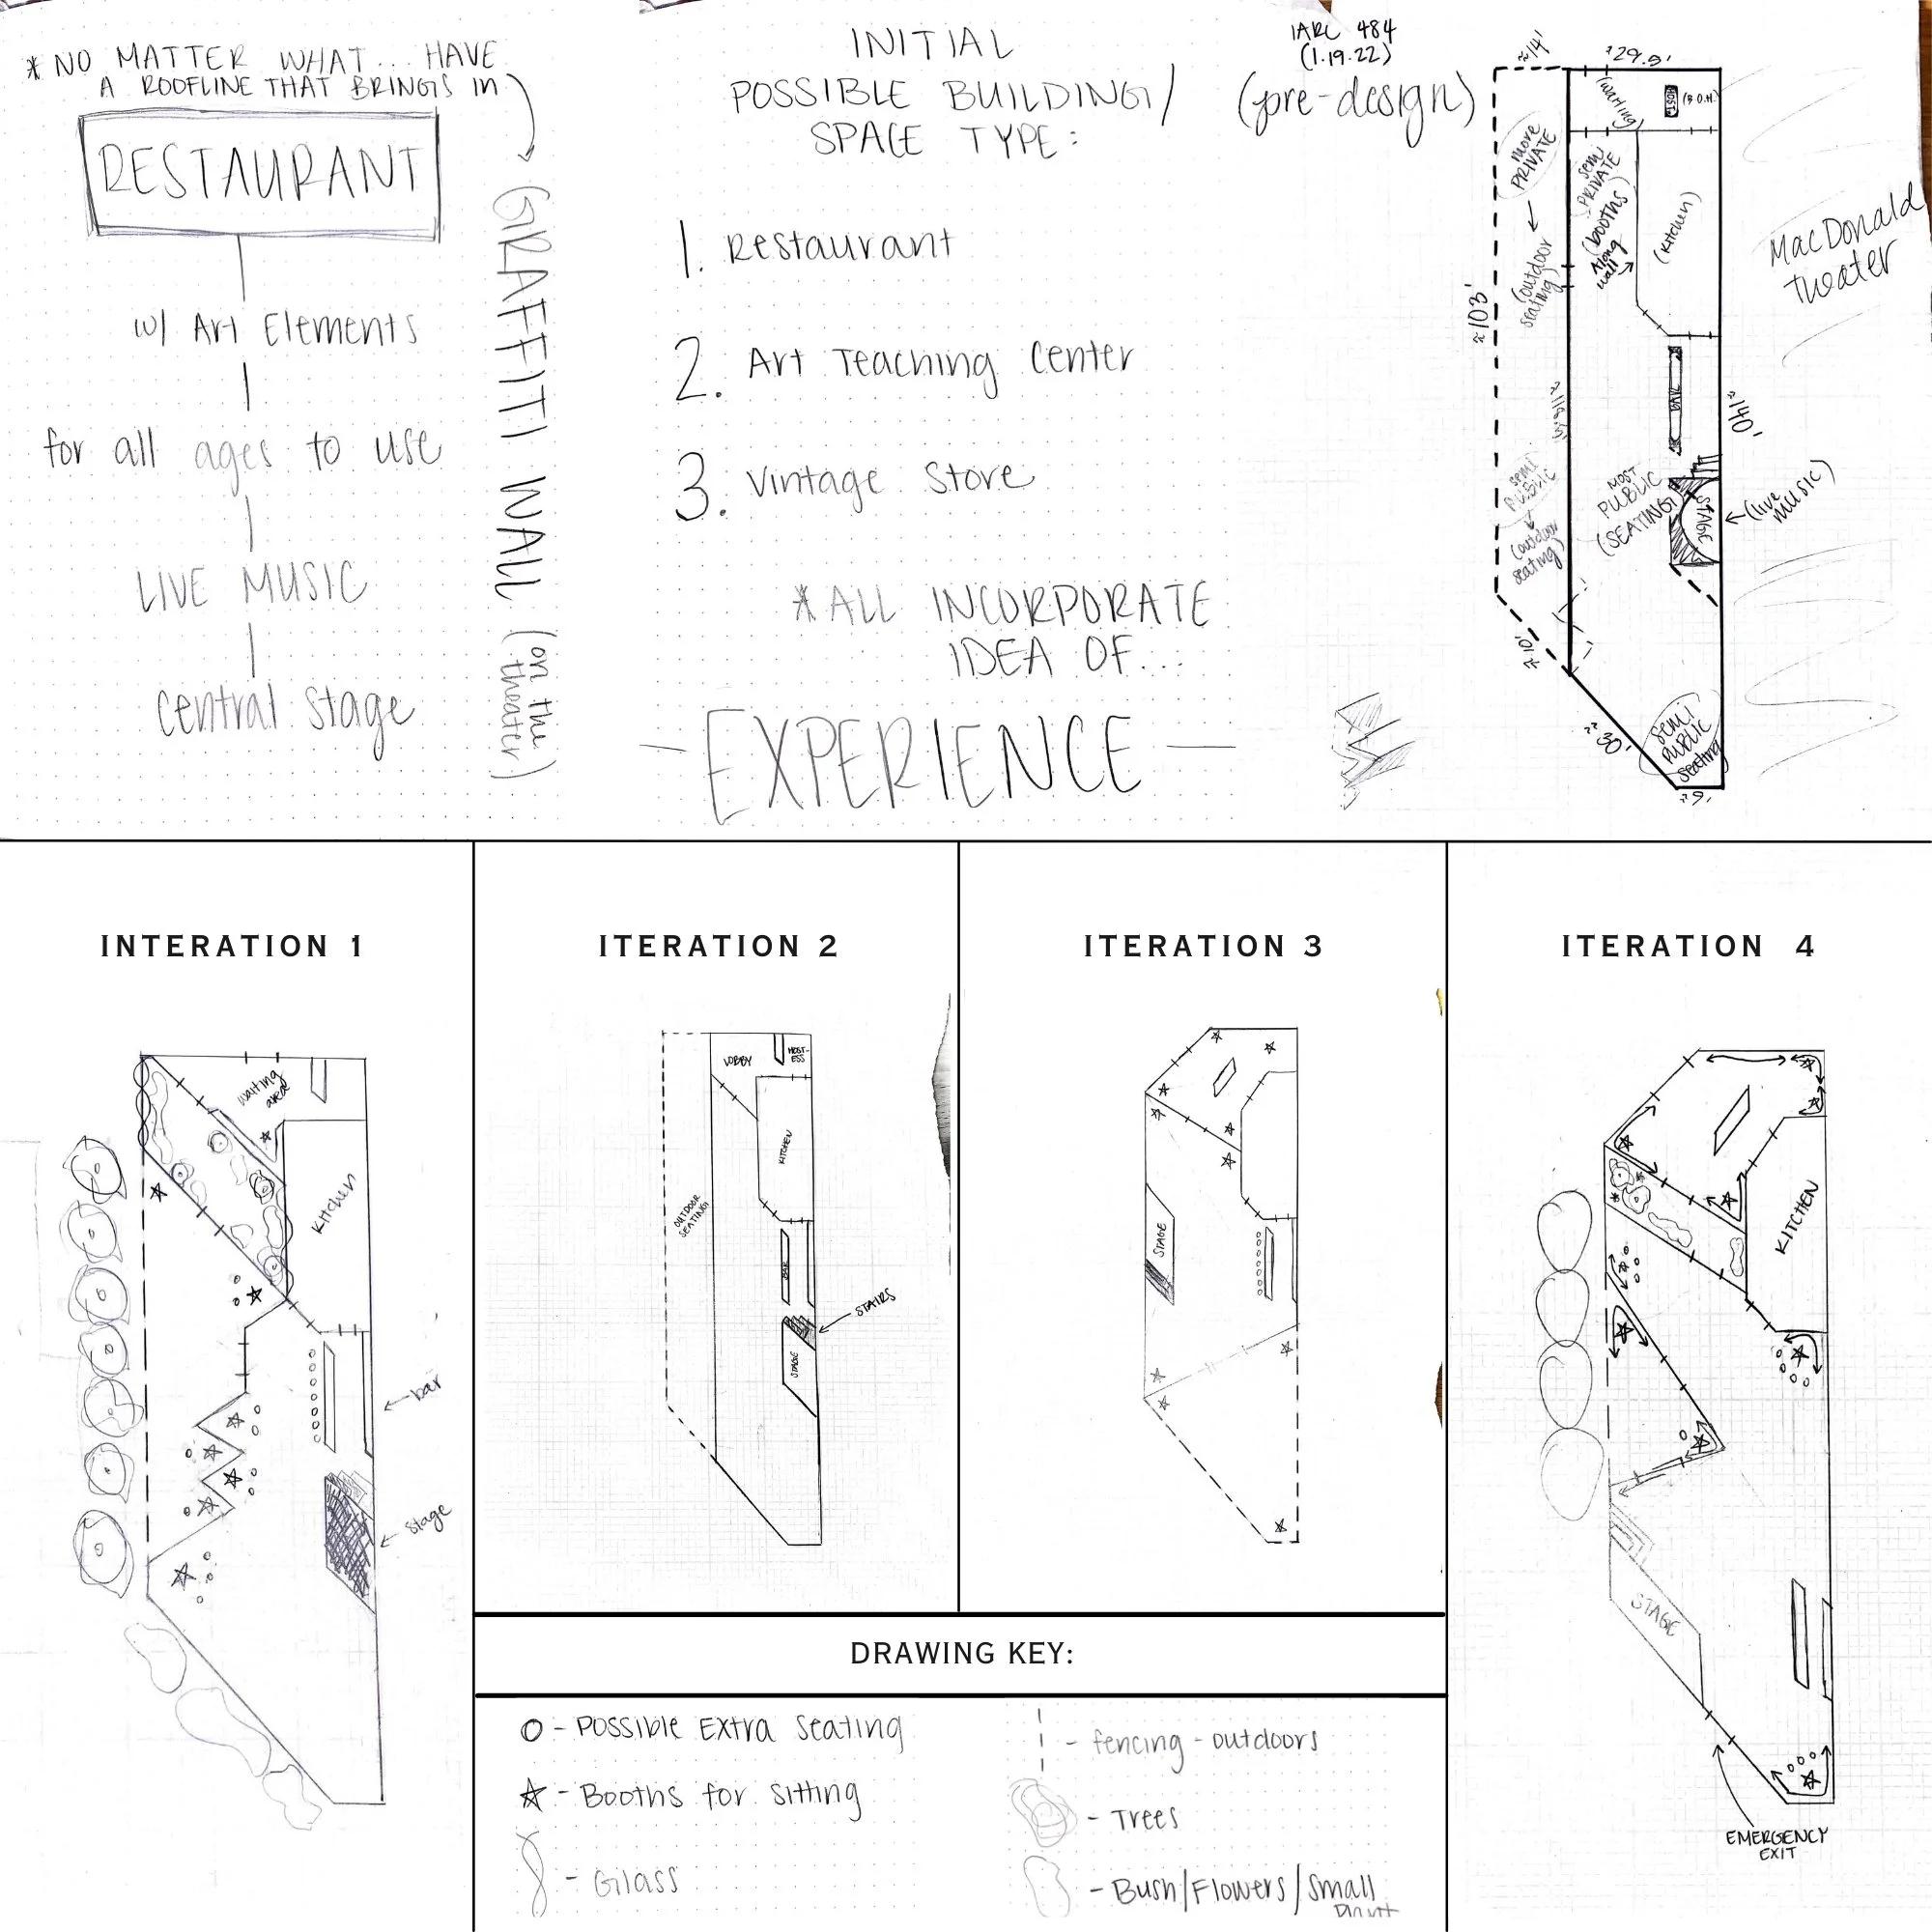 * NO MATTER WHAT... HAVE
A ROOFLINE THAT BRINGS in
RESTAURANT
w/ Art Elements
for all ages to use
LIVE MUSIC
central stage
GRAFFITI WALL (on the
theater)
INITIAL
POSSIBLE BUILDING/
SPACE TYPE:
1. Restaurant
2. Art Teaching Center
3. Vintage Store
*ALL INCORPORATE
IDEA OF...
- EXPERIENCE -
IARC 484
(1.19.22)
(pre-design)
≈14'
≈29.5'
(waiting)
HOST
(B.O.H.)
more
PRIVATE
(outdoor
seating)
semi
PRIVATE
(booths)
Along
wall
(kitchen)
MacDonald
theater
≈103'
BAR
≈140'
semi
PUBLIC
(outdoor
seating)
MOST
PUBLIC
(SEATING)
STAGE
(live
music)
≈10'
≈30'
semi
PUBLIC
seating
≈9'
INTERATION 1
waiting
area
kitchen
bar
stage
ITERATION 2
LOBBY
HOST-
ESS
KITCHEN
OUTDOOR
SEATING
BAR
STAIRS
STAGE
ITERATION 3
STAGE
ITERATION 4
KITCHEN
STAGE
EMERGENCY
EXIT
DRAWING KEY:
O - Possible Extra Seating
☆ - Booths for sitting
- Glass
- fencing - outdoors
- Trees
- Bush/Flowers/Small
Plant